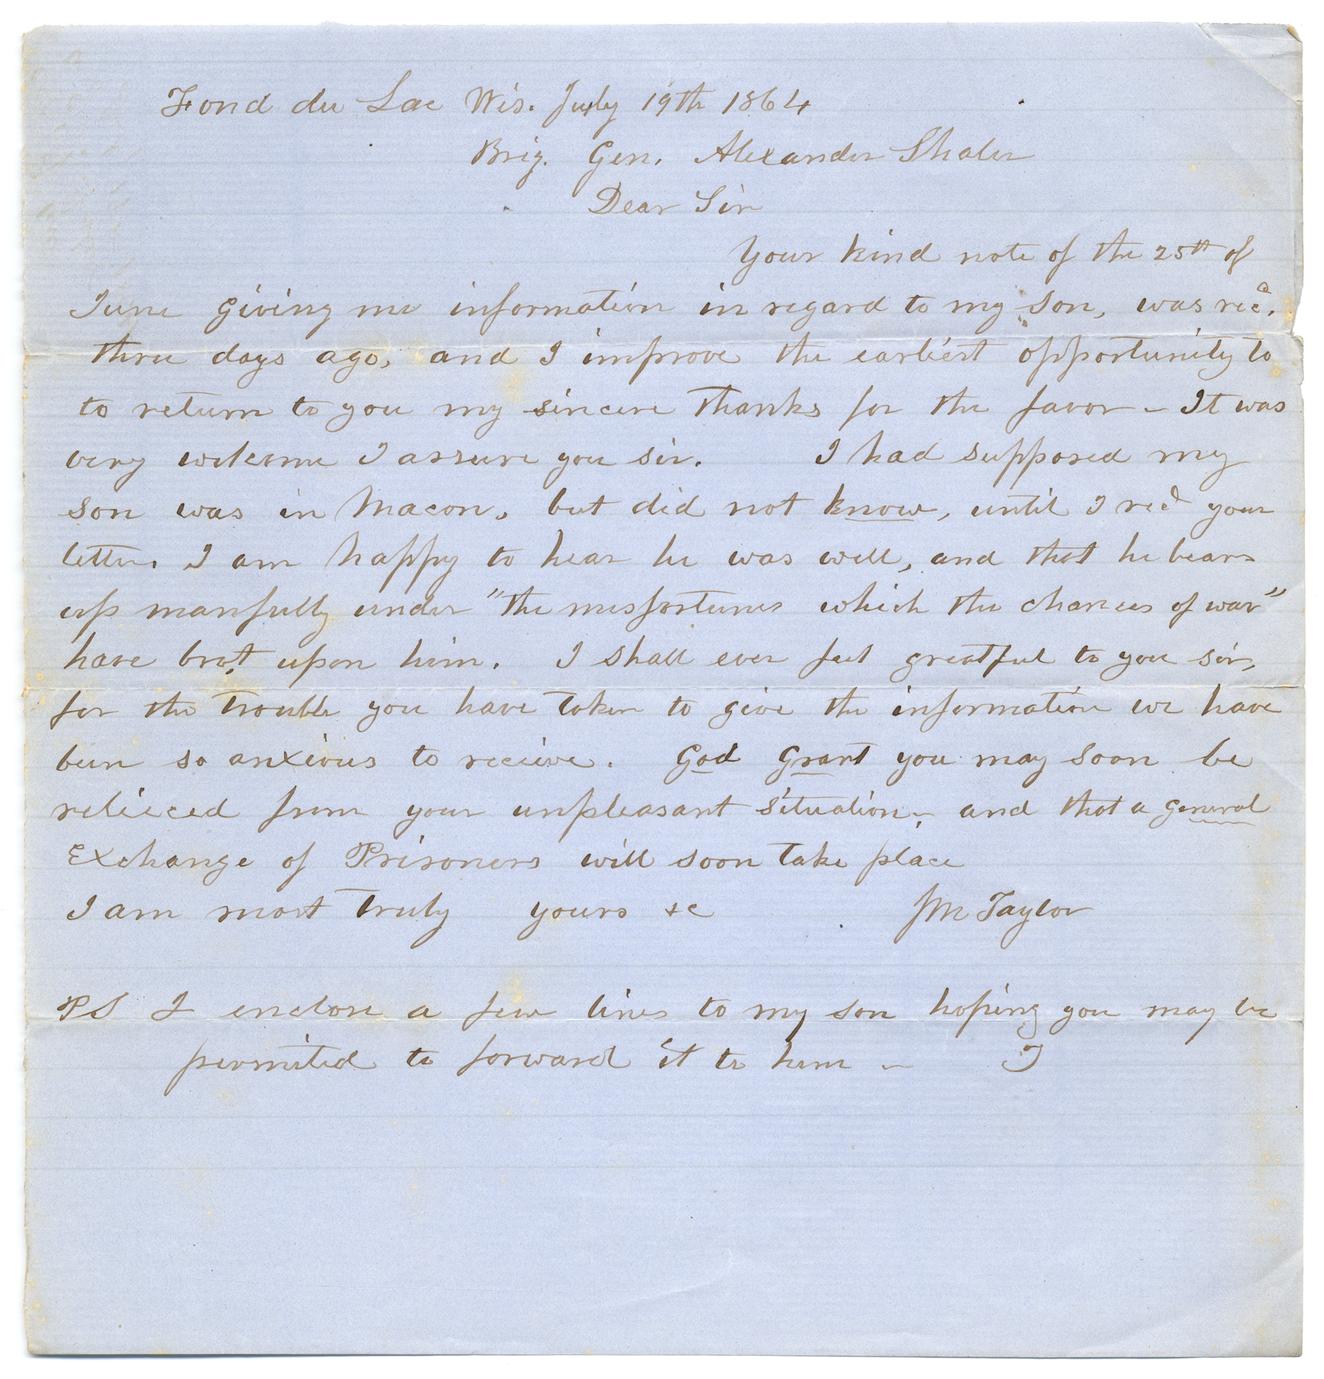 Fond du Lac Wis. July 19th 1864
Brig. Gen. Alexander Shaler
Dear Sir
Your kind note of the 25th of
June giving me information in regard to my son, was recd.
three days ago, and I improve the earliest opportunity to
to return to you my sincere thanks for the favor - It was
very welcome I assure you sir. I had supposed my
son was in Macon, but did not know, until I recd your
letter. I am happy to hear he was well, and that he bears
up manfully under "the misfortunes which the chances of war"
have brot upon him. I shall ever feel greatful to you sir,
for the trouble you have taken to give the information we have
been so anxious to recieve. God Grant you may soon be
relieced from your unpleasant situation - and that a general
Exchange of Prisoners will soon take place
I am most truly yours &c JM Taylor
PS I enclose a few lines to my son hoping you may be
permitted to forward it to him - T